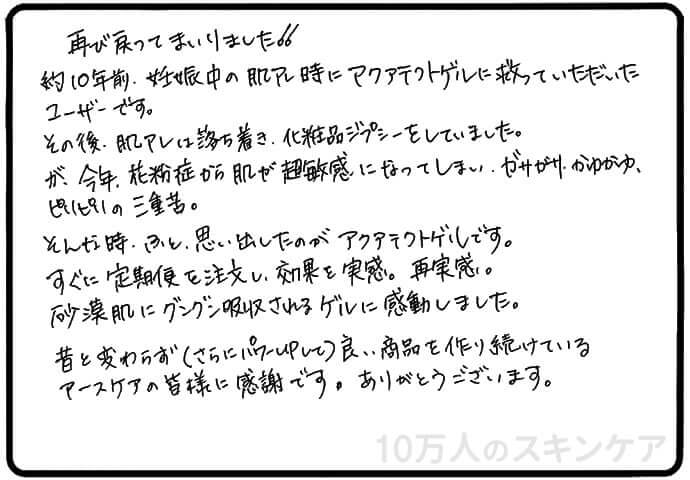 再び戻ってまいりました!!
約10年前、妊娠中の肌アレ時にアクアテクトゲルに救っていただいた
ユーザーです。
その後、肌アレは落ち着き、化粧品ジプシーをしていました。
が、今年、花粉症から肌が超敏感になってしまい、ガサガサ、かゆかゆ、
ピリピリの三重苦。
そんな時、ふと、思い出したのがアクアテクトゲルです。
すぐに定期便を注文し、効果を実感。再実感。
砂漠肌にグングン吸収されるゲルに感動しました。
昔と変わらず(さらにパワーUPして)良い商品を作り続けている
アースケアの皆様に感謝です。ありがとうございます。
10万人のスキンケア